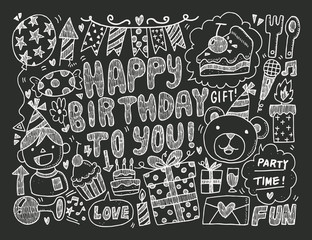 HAPPY
BIRTHDAY
TO YOU!
GIFT!
PARTY
TIME!
LOVE
FUN